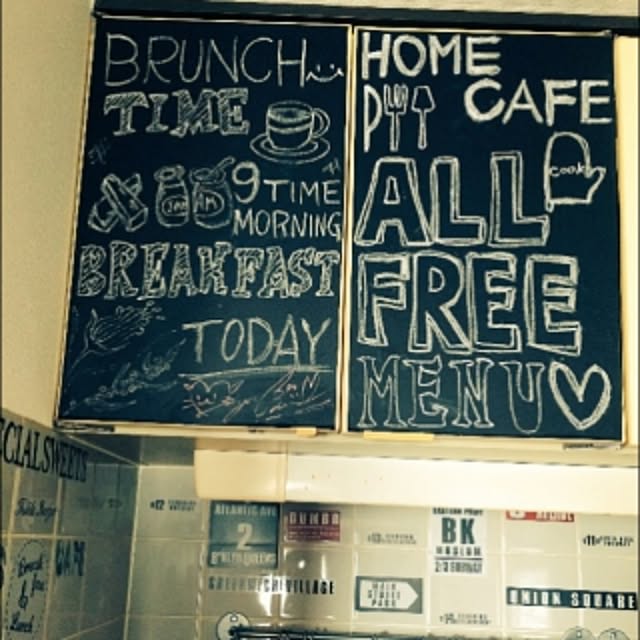 BRUNCH
TIME
9 TIME
MORNING
BREAKFAST
TODAY
HOME
CAFE
cook
ALL
FREE
MENU
CIALSWEETS
ATLANTIC AV
2
DUMBO
BK
MUSEUM
GREENWICH VILLAGE
MAIN
STREET
PARK
UNION SQUARE